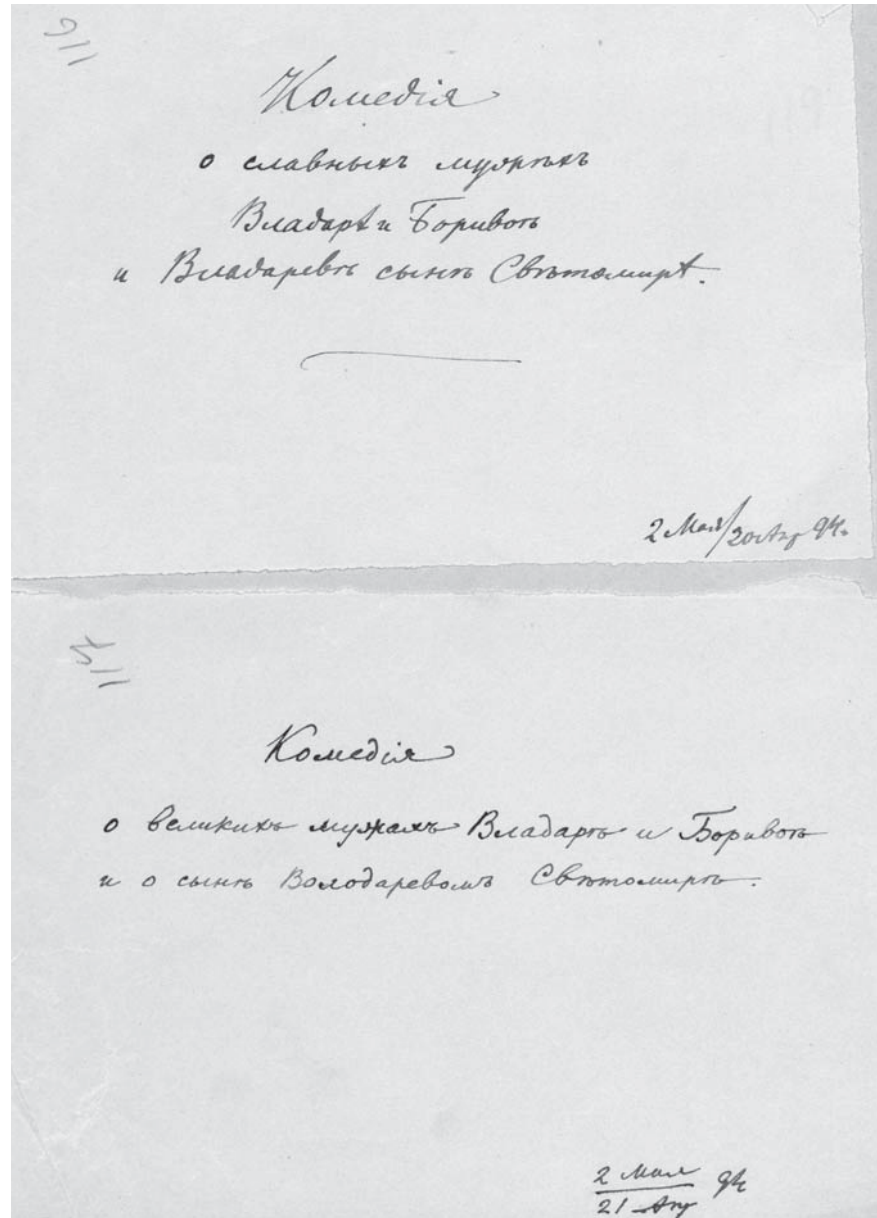 116
Комедія
о славныхъ мужѣхъ
Владарѣ и Боривоѣ
и Владаревѣ сынѣ Свѣтомирѣ.
2 Мая/20 Апр 94.
117
Комедія
о великихъ мужахъ Владарѣ и Боривоѣ
и о сынѣ Володаревомъ Свѣтомирѣ.
2 Мая
21 Апр 94